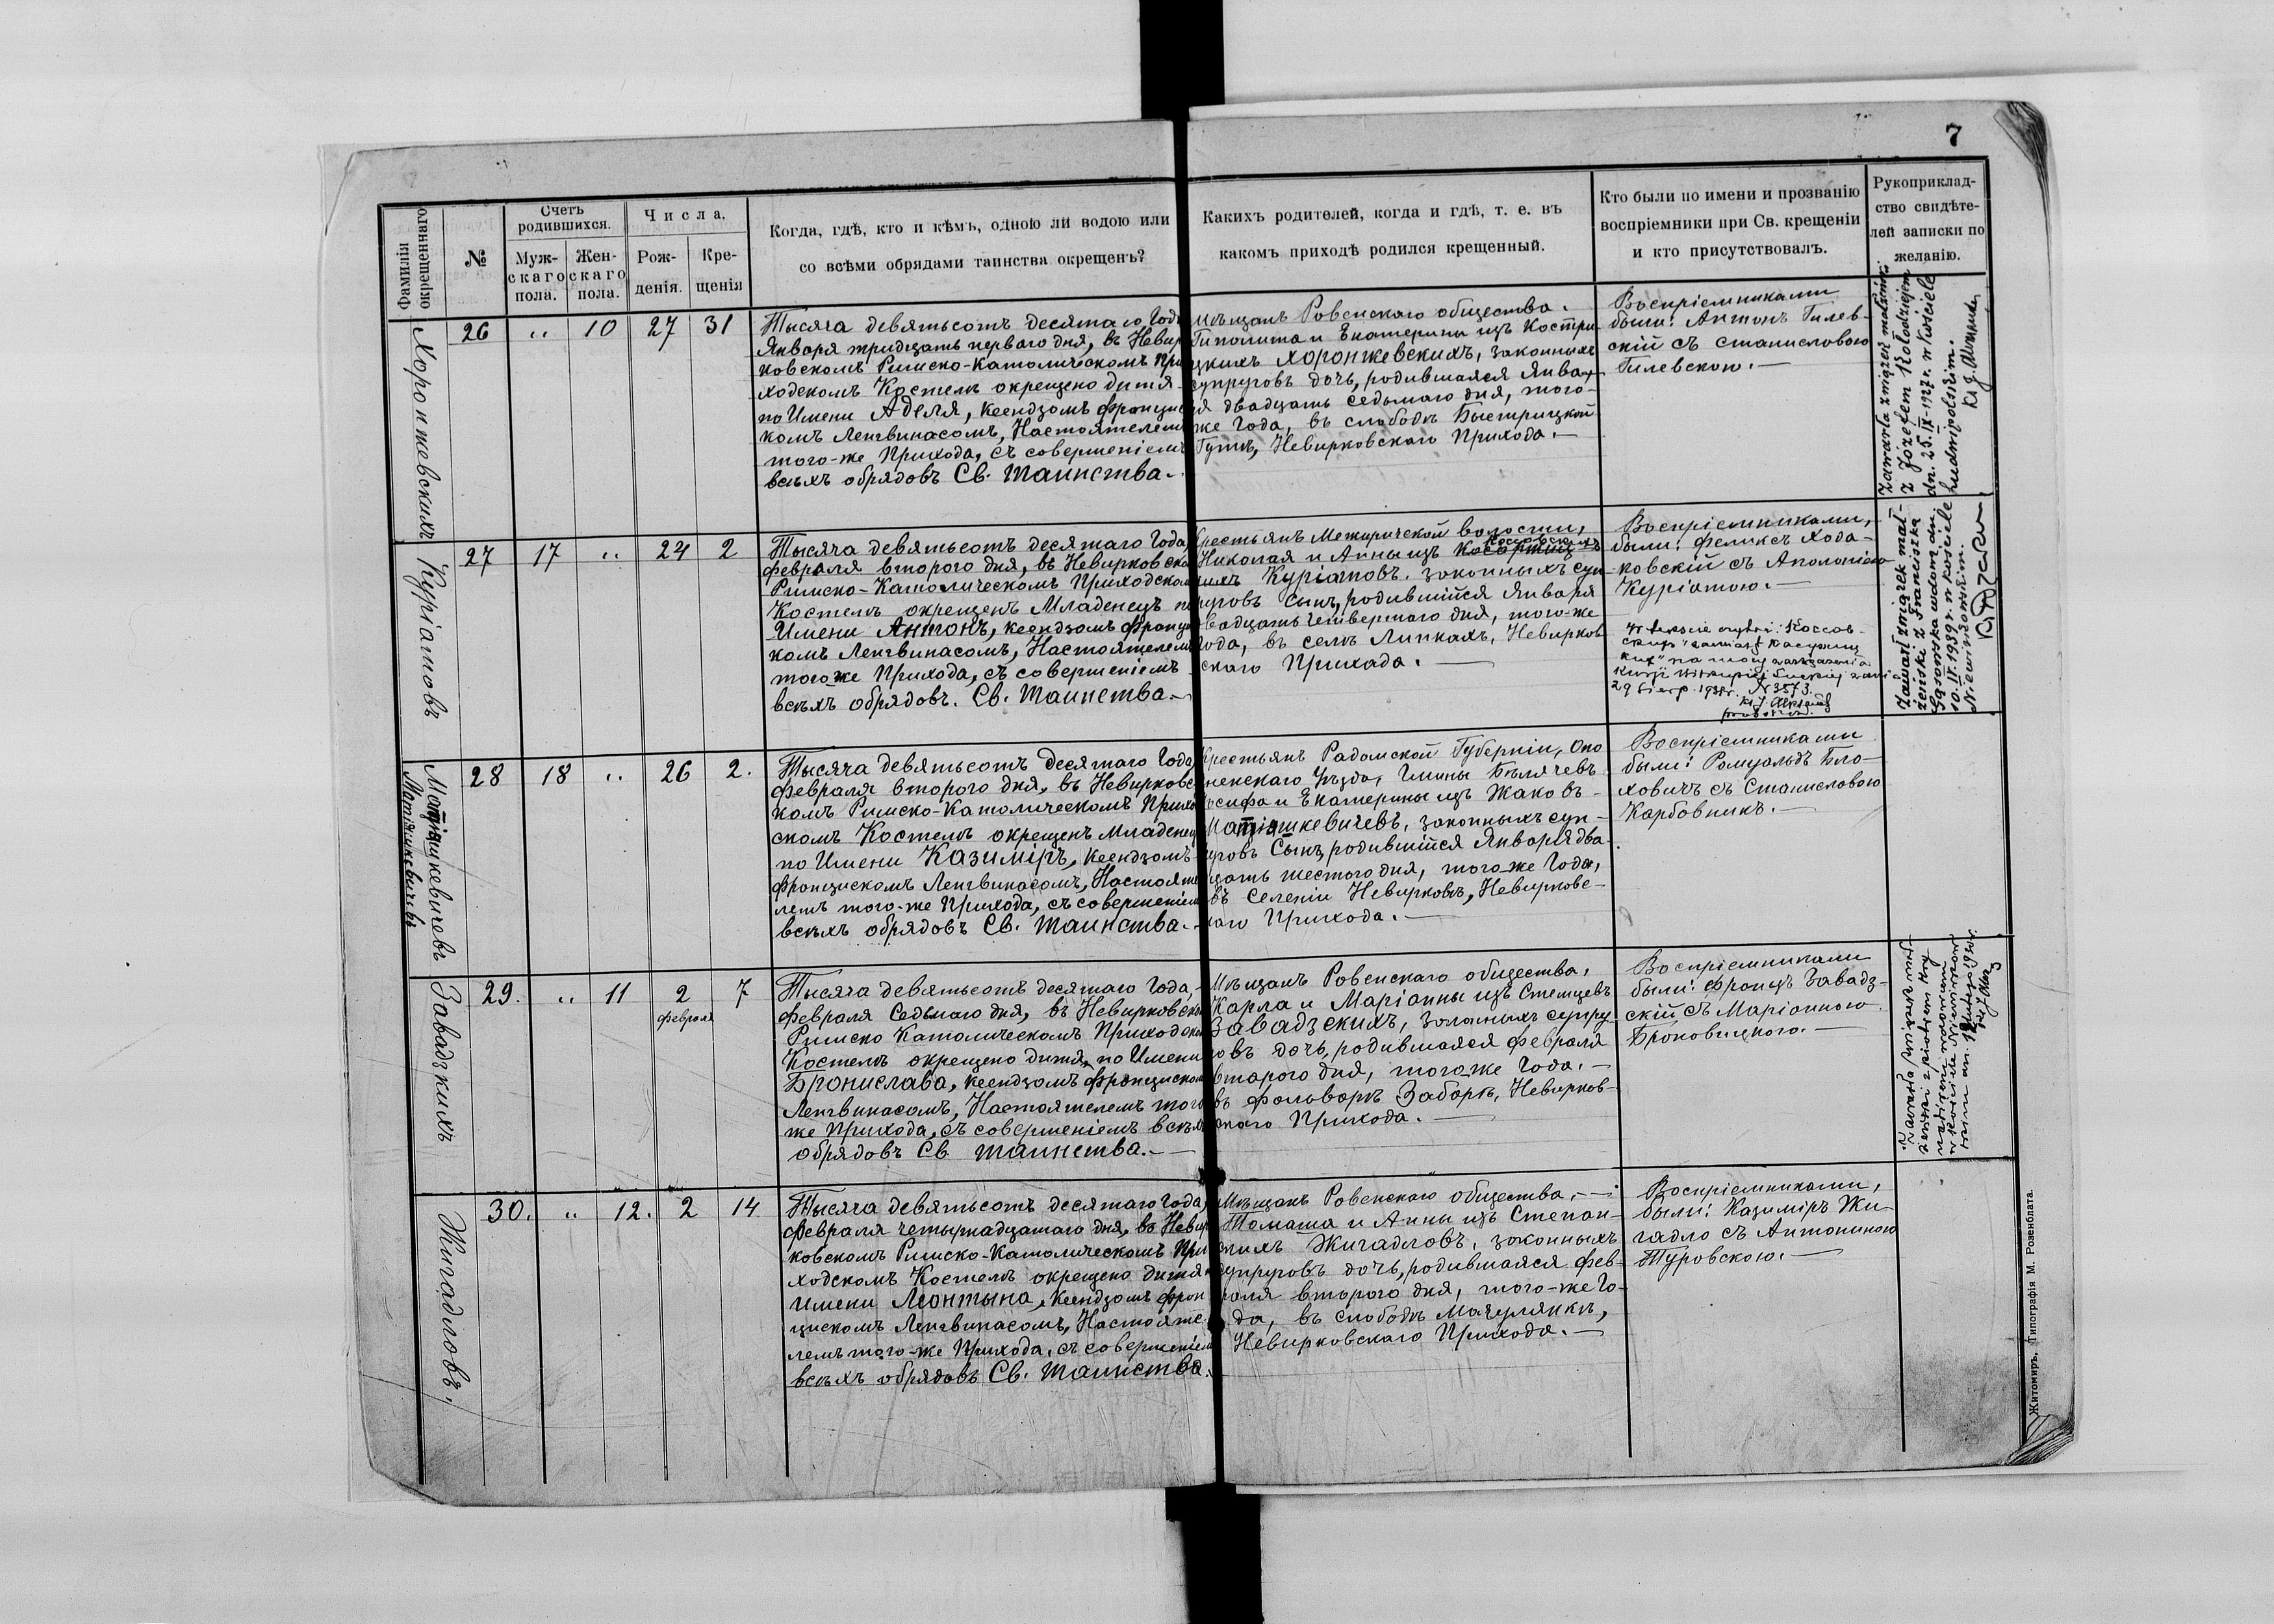 7
Фамилія окрещеннаго
№
Счетъ родившихся.
Муж-
скаго
пола.
Жен-
скаго
пола.
Числа.
Рож-
денія.
Кре-
щенія
Когда, гдѣ, кто и кѣмъ, одною ли водою или
со всѣми обрядами таинства окрещенъ?
Какихъ родителей, когда и гдѣ, т. е. въ
какомъ приходѣ родился крещенный.
Кто были по имени и прозванію
воспріемники при Св. крещеніи
и кто присутствовалъ.
Рукоприклад-
ство свидѣте-
лей записки по
желанію.
Хоронжевскихъ
26 „ 10 27 31
Тысяча девятьсотъ десятаго Года
Января тридцать перваго дня, въ Невир
ковскомъ Римско-Католическомъ При
ходскомъ Костелѣ окрещено дитя
по Имени Аделя, ксендзомъ Францис
комъ Ленгвинасомъ, Настоятелемъ
того-же Прихода, съ совершеніемъ
всѣхъ обрядовъ Св. Таинства.
Мѣщанъ Ровенскаго общества.
Гиполита и Екатерины изъ Костри-
цкихъ Хоронжевскихъ, законныхъ
супруговъ дочь, родившаяся Янва-
ря двадцать седьмаго дня, того-
же Года, въ слободѣ Быстрицкой
Гутѣ, Невирковскаго Прихода.
Воспріемниками
были: Антонъ Гилев-
скій съ Станиславою
Гилевскою.
Zawarła związek małżeński
z Józefem Kołodziejem
dn. 25.IX-1927 r. w kościele
Ludwipolskim.
Куріатовъ
27 17 „ 24 2
Тысяча девятьсотъ десятаго Года,
февраля втораго дня, въ Невирковско
Римско-Католическомъ Приходском
Костелѣ окрещенъ Младенецъ по
Имени Антонъ, ксендзомъ Францис
комъ Ленгвинасомъ, Настоятелемъ
того же Прихода, съ совершеніемъ
всѣхъ обрядовъ. Св. Таинства.
Крестьянъ Межиричской волости,
Николая и Анны изъ
кихъ Куріатовъ. законныхъ суп-
руговъ сынъ, родившійся Января
двадцать четвертаго дня, того-же
Года, въ селѣ Липкахъ, Невирков
скаго Прихода.
Воспріемниками,
были: Феликсъ Хода-
ковскій съ Аполонією
Куріатою.
29 sierp. 1938 r. N 3573.
Zawarł związek mał-
żeński z Franciszką
10.IV.1939 r. w kościele
Niewirkowskim.
Матіяшкевичевъ
28 18 „ 26 2.
Тысяча девятьсотъ десятаго Года
февраля втораго дня, въ Невирковс
комъ Римско-Католическомъ Прихо
скомъ Костелѣ окрещенъ Младенец
по Имени Казиміръ, ксендзомъ
Францискомъ Ленгвинасомъ, Настояте
лемъ того-же Прихода, съ совершеніем
всѣхъ обрядовъ Св. Таинства.
Крестьянъ Радомской Губерніи, Опо
ченскаго Уѣзда, Гмины Бѣлячевъ
Іосифа и Екатерины изъ Жаковъ-
Матіяшкевичевъ, законныхъ суп-
руговъ Сынъ, родившійся Января два-
цать шестого дня, того же Года,
въ Селеніи Невирковѣ, Невирковс-
каго Прихода.
Воспріемниками
были: Ромуальдъ Бло-
ховичъ съ Станиславою
Карбовникъ.
Завадзкихъ
29. „ 11 2 февраля 7
Тысяча девятьсотъ десятаго Года,
февраля Седьмаго дня, въ Невирковском
Римско Католическомъ Приходском
Костелѣ окрещено дитя, по Имени
Бронислава, ксендзомъ Францискомъ
Ленгвинасомъ, Настоятелемъ того
же Прихода, съ совершеніемъ всѣхъ
обрядовъ Св. Таинства.
Мѣщанъ Ровенскаго общества,
Карла и Маріанны изъ Стемцевъ
Завадзскихъ, законныхъ супру-
говъ дочь, родившаяся февраля
втарого дня, того же Года.
въ фольваркѣ Заборѣ, Невирков-
скаго Прихода.
Воспріемниками
были: Францъ Завадз-
скій съ Маріанною
Броновицкою.
Жигадловъ,
30. „ 12. 2 14
Тысяча девятьсотъ десятаго Года,
февраля четырнадцатаго дня, въ Невир
ковскомъ Римско-Католическомъ При
ходскомъ Костелѣ окрещено дитя по
Имени Леонтына, ксендзомъ Фран
цискомъ Ленгвинасомъ, Настояте
лемъ того-же Прихода, съ совершеніем
всѣхъ обрядовъ Св. Таинства.
Мѣщанъ Ровенскаго общества,
Томаша и Анны изъ Степан-
скихъ Жигадловъ, законныхъ
супруговъ дочь, родившаяся фев-
раля второго дня, того-же Го-
да, въ слободѣ Мачулянкѣ,
Невирковскаго Прихода.
Воспріемниками,
были: Казиміръ Жи-
гадло съ Антониною
Туровскою.
Житомиръ, Типографія М. Розенблата.